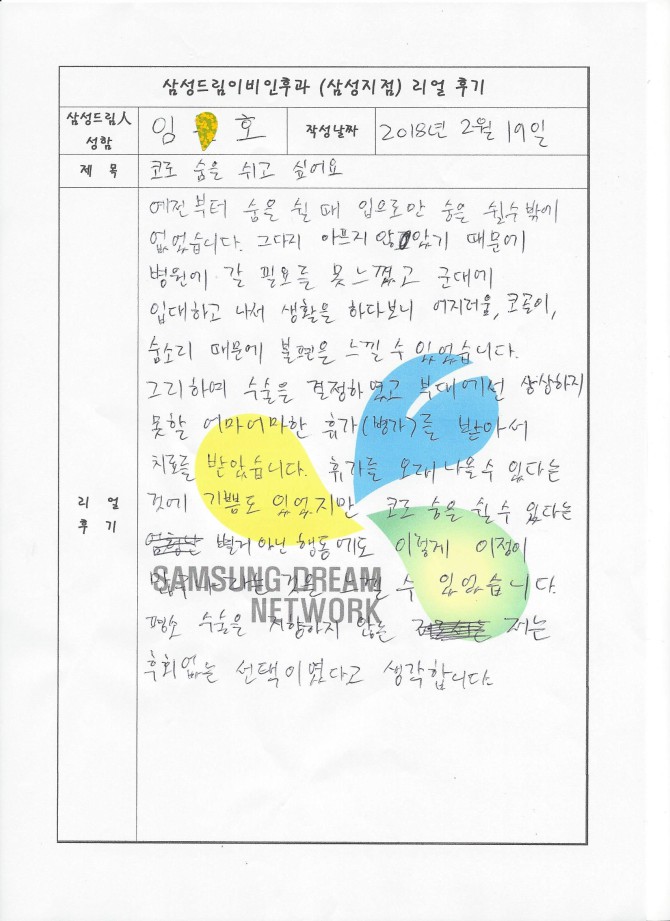 삼성드림이비인후과 (삼성지점) 리얼 후기
삼성드림人 성함
임 호
작성날짜
2018년 2월 19일
제 목
코로 숨을 쉬고 싶어요
리 얼
후 기
예전부터 숨을 쉴 때 입으로만 숨을 쉴수밖에
없었습니다. 그다리 아프지 않았기 때문에
병원에 갈 필요를 못느꼈고 군대에
입대하고 나서 생활을 하다보니 어지러움, 코골이,
숨소리 때문에 불편을 느낄 수 있었습니다.
그리하여 수술을 결정하였고 부대에선 상상하지
못할 어마어마한 휴가(병가)를 받아서
치료를 받았습니다. 휴가를 오래나올수 있다는
것에 기쁨도 있었지만 코로 숨을 쉴 수 있다는
별거 아닌 행동에도 이렇게 이점이
것을 느낄 수 있었습니다.
평소 수술을 지향하지 않는 저는
후회없는 선택이였다고 생각합니다.
SAMSUNG DREAM
NETWORK